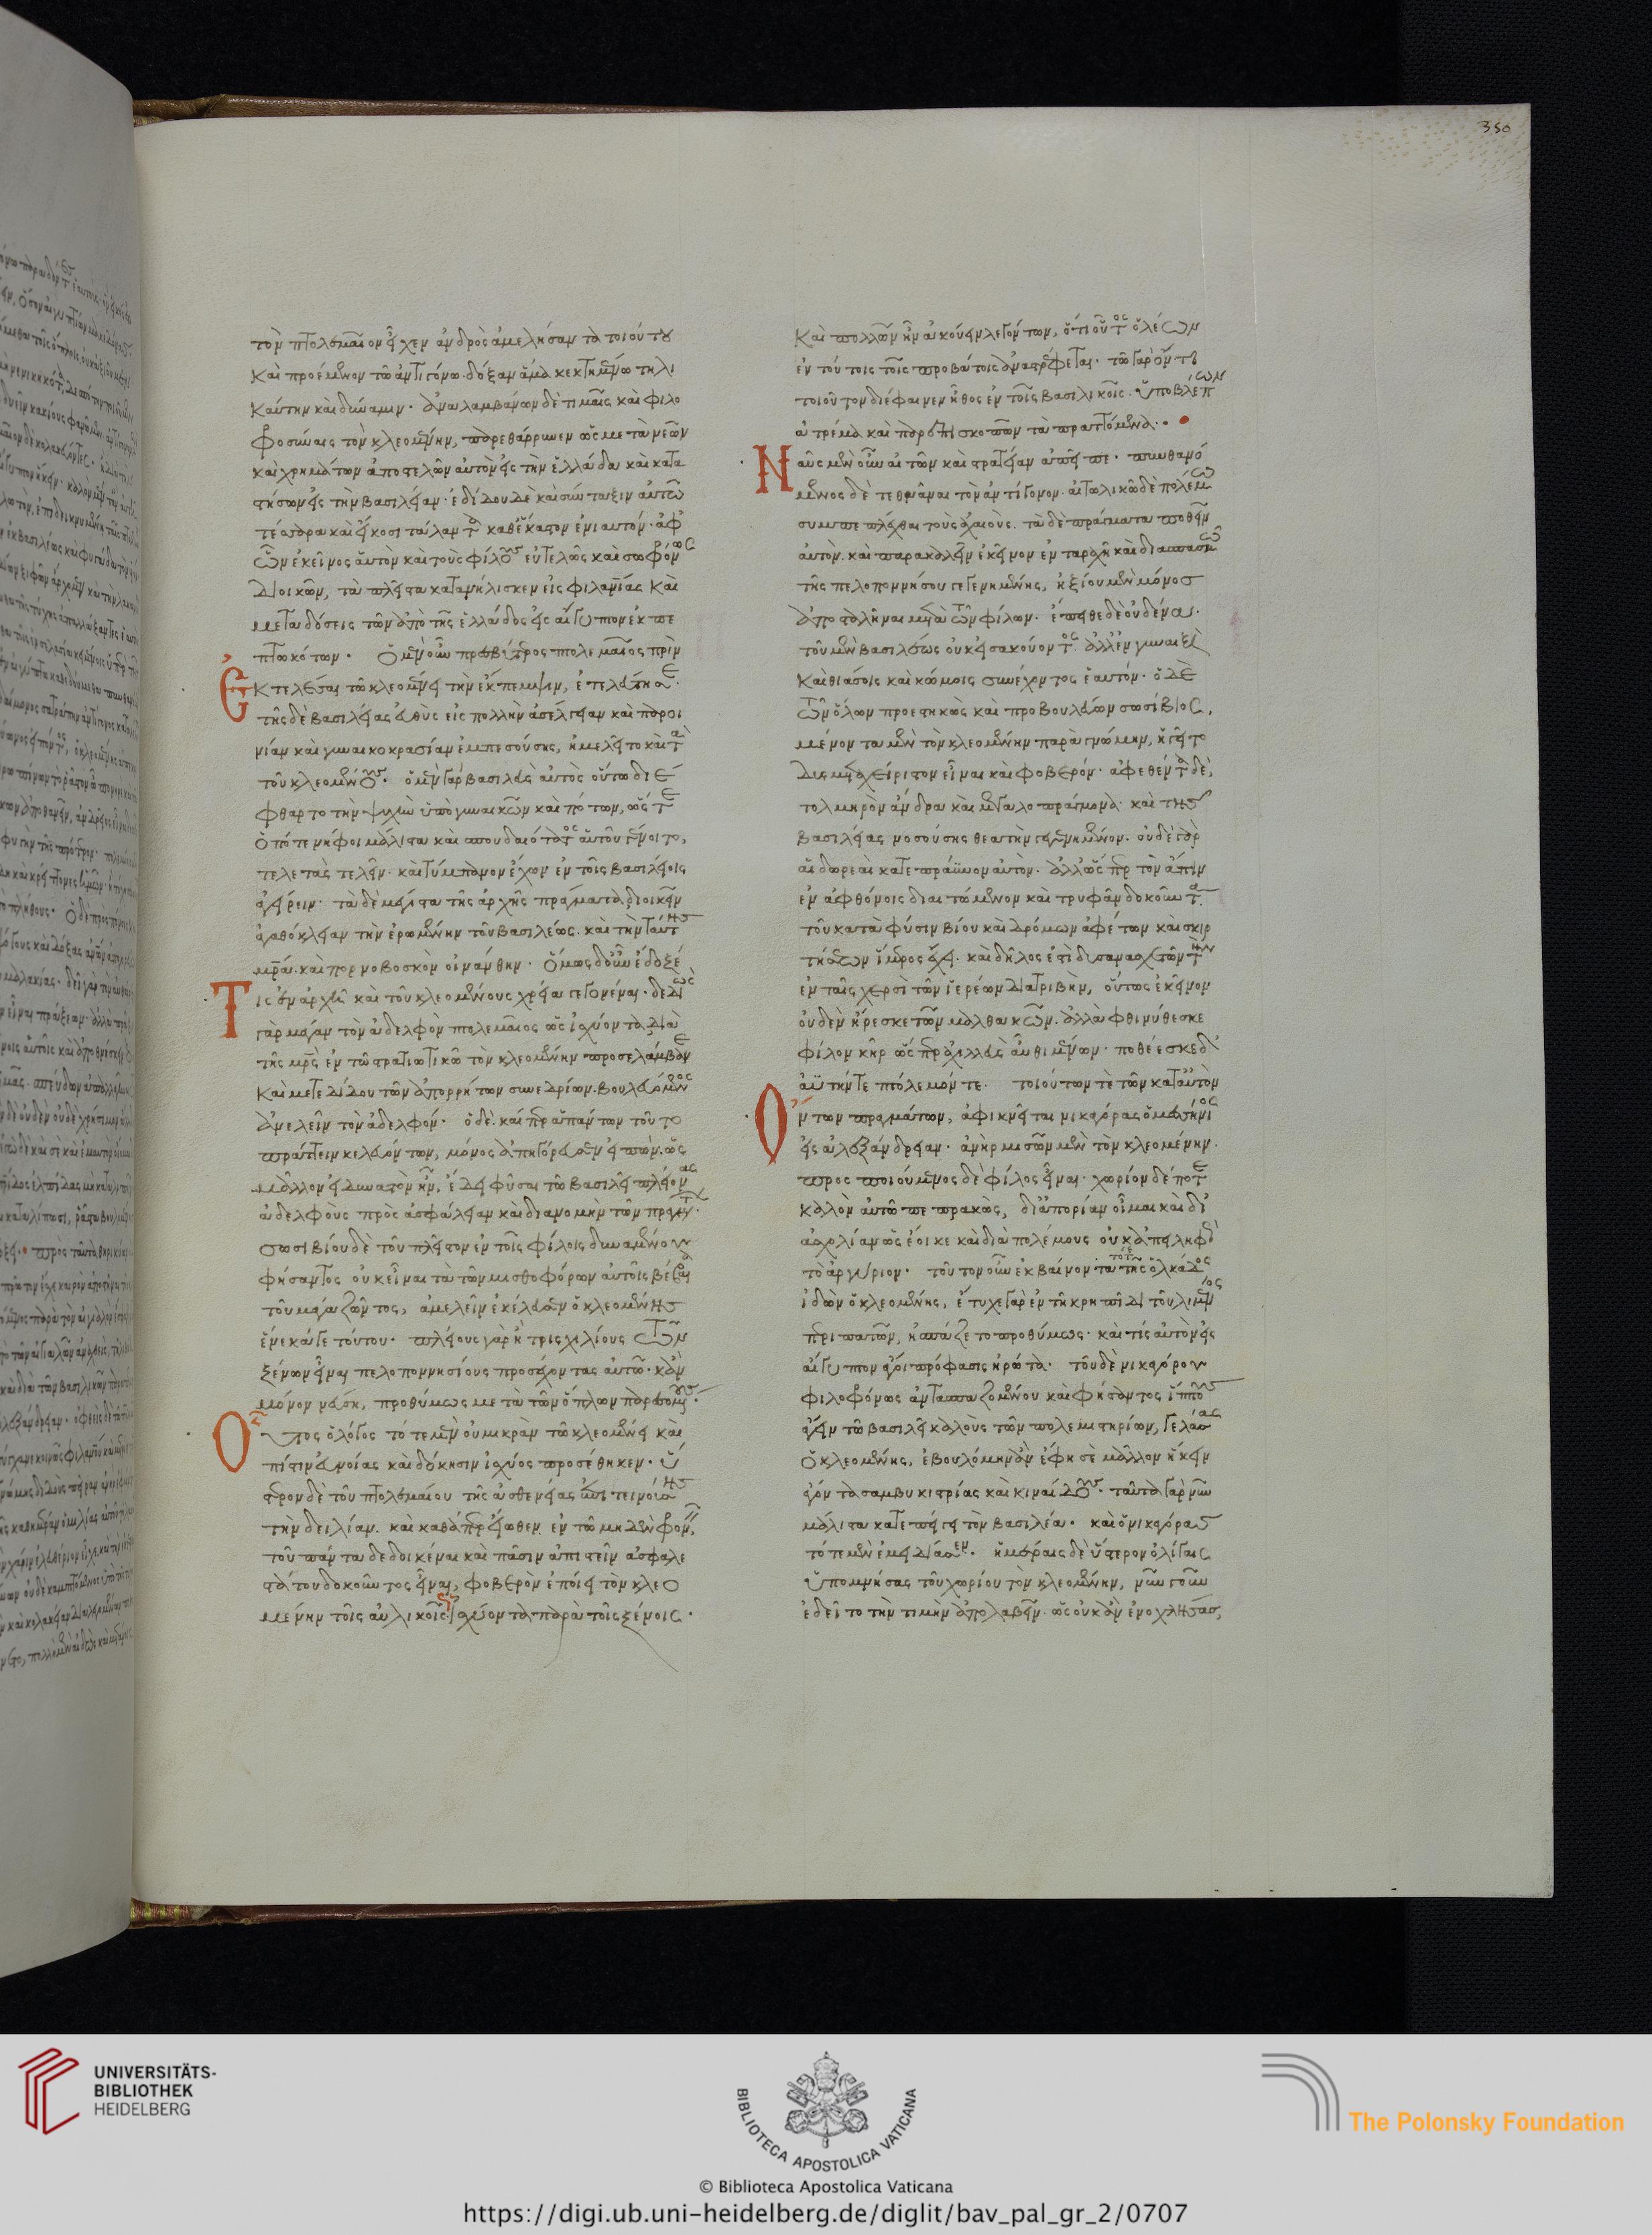 τὸν πτολεμαῖον εἶχεν ἀνδρὸς ἀμελήσαντα τοιούτου
καὶ προέμενον τῶ ἀντιγόνω δόξαν ἅμα κεκτημένω τηλι
καύτην καὶ δύναμιν. ἀναλαμβάνων δὲ τιμαῖς καὶ φιλο
φροσύναις τὸν κλεομένην, παρεθάρρυνεν ὡς μετὰ νεῶν
καὶ χρημάτων ἀποστελῶν αὐτὸν εἰς τὴν ἑλλάδα καὶ κατα
στήσων εἰς τὴν βασιλείαν. ἐδίδου δὲ καὶ σύνταξιν αὐτῶ
τέσσαρα καὶ εἴκοσι τάλαντα καθ' ἕκαστον ἐνιαυτόν. ἀφ'
ὧν ἐκεῖνος αὑτὸν καὶ τοὺς φίλους εὐτελῶς καὶ σωφρόνως
διοικῶν, τὰ πλεῖστα κατανήλισκεν εἰς φιλανίας καὶ
μεταδόσεις τῶν ἀπὸ τῆς ἑλλάδος εἰς αἴγυπτον ἐκπε
πτωκότων. ὁ μὲν οὖν πρεσβύτερος πτολεμαῖος, πρὶν
Ἐκτελέσαι τῶ κλεομένει τὴν ἔκπεμψιν, ἐτελεύτησε.
τῆς δὲ βασιλείας εὐθὺς εἰς πολλὴν ἀσέλγειαν καὶ παροι
νίαν καὶ γυναικοκρασίαν ἐμπεσούσης, ἠμελεῖτο καὶ τὰ
τοῦ κλεομένους. ὁ μὲν γὰρ βασιλεὺς αὐτὸς οὕτω διέ
φθαρτο τὴν ψυχὴν ὑπὸ γυναικῶν καὶ πότων, ὥστε
ὁπότε νήφοι μάλιστα καὶ σπουδαιότατος αὑτοῦ γένοιτο,
τελετὰς τελεῖν. καὶ τύμπανον ἔχων ἐν τοῖς βασιλείοις
ἀγείρειν. τὰ δὲ μέγιστα τῆς ἀρχῆς πράγματα διοικεῖν
ἀγαθόκλειαν τὴν ἐρωμένην τοῦ βασιλέως. καὶ τὴν ταύτης
μρα. καὶ πορνοβοσκὸν οἰνάνθην. ὅμως δ' οὖν ἔδοξέ
Τις ἐν ἀρχῆ καὶ τοῦ κλεομένους χρεία γεγονέναι. δεδιὼς
γὰρ μάγαν τὸν ἀδελφὸν πτολεμαῖος ὡς ἰσχύοντα διὰ
τῆς μρς ἐν τῶ στρατιωτικῶ τὸν κλεομένην προσελάμβανε
καὶ μετεδίδου τῶν ἀπορρήτων συνεδρίων. βουλευόμενος
ἀνελεῖν τὸν ἀδελφόν. ὁ δὲ. καίπερ ἁπάντων τοῦτο
πράττειν κελευόντων, μόνος ἀπηγόρευσεν εἰπὼν. ὡς
μᾶλλον εἰ δυνατὸν ἦν, ἔδει φῦσαι τῶ βασιλεῖ πλείονας
ἀδελφοὺς πρὸς ἀσφάλειαν καὶ διανομὴν τῶν πραγμάτων.
σωσιβίου δὲ τοῦ πλεῖστον ἐν τοῖς φίλοις δυναμένου
φήσαντος οὐκ εἶναι τὰ τῶν μισθοφόρων αὐτοῖς βέβαια
τοῦ μάγα ζῶντος, ἀμελεῖν ἐκέλευσεν ὁ κλεομένης
ἕνεκά γε τούτου. πλείους γὰρ ἢ τρισχιλίους τῶν
ξένων εἶναι πελοποννησίους προσέχοντας αὐτῶ. κἂν
μόνον νεύση, προθύμως μετὰ τῶν ὅπλων παρεσομένους.
Οὗτος ὁ λόγος τότε μὲν οὐ μικρὰν τῶ κλεομένει καὶ
πίστιν εὐνοίας καὶ δόκησιν ἰσχύος προσέθηκεν. ὕ
στερον δὲ τοῦ πτολεμαίου τῆς ἀσθενείας ἐπιτεινούσης
τὴν δειλίαν. καὶ καθάπερ εἴωθεν ἐν τῶ μηδὲν φρονεῖν,
τοῦ πάντα δεδοικέναι καὶ πᾶσιν ἀπιστεῖν ἀσφαλε
στάτου δοκοῦντος εἶναι, φοβερὸν ἐποίει τὸν κλεο
μένην τοῖς αὐλικοῖς ἰσχύοντα παρὰ τοῖς ξένοις.
καὶ πολλῶν ἦν ἀκούειν λεγόντων, ὅτι οὗτος ὁ λέων
ἐν τούτοις τοῖς προβάτοις ἀναστρέφεται. τῶ γὰρ ὄντι
τοιοῦτον διέφαινεν ἦθος ἐν τοῖς βασιλικοῖς. ὑποβλέπων
ἀτρέμα καὶ παρεπισκοπῶν τὰ πραττόμενα.
Ναῦς μὲν οὖν αἰτῶν καὶ στρατείαν ἀπεῖπε. πυνθανό
μενος δὲ τεθνάναι τὸν ἀντίγονον. αἰτωλικῶ δὲ πολέμω
συμπεπλέχθαι τοὺς ἀχαιοὺς. τὰ δὲ πράγματα ποθεῖν
αὐτὸν. καὶ παρακαλεῖν ἐκεῖνον ἐν ταραχῆ καὶ διασπασμῶ
τῆς πελοποννήσου γεγενημένης, ἠξίου μὲν μόνος
ἀποσταλῆναι μετὰ τῶν φίλων. ἔπειθε δὲ οὐδένα.
τοῦ μὲν βασιλέως οὐκ εἰσακούοντος. ἀλλ' ἐν γυναιξὶ
καὶ θιάσοις καὶ κώμοις συνέχοντος ἑαυτόν. ὁ δὲ
τῶν ὅλων προεστηκὼς καὶ προβουλεύων σωσίβιος,
μένοντα μὲν τὸν κλεομένην παρὰ γνώμην, ἡγεῖτο
δυσμεταχείριστον εἶναι καὶ φοβερόν. ἀφεθέντα δὲ,
τολμηρὸν ἄνδρα καὶ μεγαλοπράγμονα. καὶ τῆς
βασιλείας νοσούσης θεατὴν γεγενημένον. οὐδὲ γὰρ
αἱ δωρεαὶ κατεπράϋνον αὐτόν. ἀλλ' ὥσπερ τὸν ἄπιν
ἐν ἀφθόνοις διαιτώμενον καὶ τρυφᾶν δοκοῦντα
τοῦ κατὰ φύσιν βίου καὶ δρόμων ἀφέτων καὶ σκιρ
τήσεων ἵμερος ἔχει. καὶ δῆλός ἐστι δυσανασχετῶν τὴν
ἐν ταῖς χερσὶ τῶν ἱερέων διατριβὴν, οὕτως ἐκεῖνον
οὐδὲν ἤρεσκε τῶν μαλθακῶν. ἀλλὰ φθινύθεσκε
φίλον κῆρ ὥσπερ ἀχιλλεὺς αὖθι μένων. ποθέεσκε δ'
ἀϋτήν τε πτόλεμόν τε. τοιούτων τε τῶν κατ' αὐτὸν
Ὄντων πραγμάτων, ἀφικνεῖται νικαγόρας ὁ μεσσήνιος
εἰς ἀλεξάνδρειαν. ἀνὴρ μισῶν μὲν τὸν κλεομένην.
προσποιούμενος δὲ φίλος εἶναι. χωρίον δέ ποτε
καλὸν αὐτῶ πεπρακὼς, δι' ἀπορίαν οἶμαι καὶ δι'
ἀσχολίαν ὡς ἔοικε καὶ διὰ πολέμους οὐκ ἀπειληφὼς
τὸ ἀργύριον. τοῦτον οὖν ἐκβαίνοντα τότε τῆς ὁλκάδος
ἰδὼν ὁ κλεομένης, ἔτυχε γὰρ ἐν τῆ κρηπῖδι τοῦ λιμένος
περιπατῶν, ἠσπάζετο προθύμως. καὶ τίς αὐτὸν εἰς
αἴγυπτον ἄγοι πρόφασις ἠρώτα. τοῦ δὲ νικαγόρου
φιλοφρόνως ἀντασπαζομένου καὶ φήσαντος ἵππους
ἄγειν τῶ βασιλεῖ καλοὺς τῶν πολεμιστηρίων, γελάσας
ὁ κλεομένης, ἐβουλόμην ἂν ἔφη σὲ μᾶλλον ἥκειν
ἄγοντα σαμβυκιστρίας καὶ κιναίδους. ταῦτα γὰρ νῦν
μάλιστα κατεπείγει τὸν βασιλέα. καὶ ὁ νικαγόρας
τότε μὲν ἐμειδίασεν. ἡμέραις δὲ ὕστερον ὀλίγαις
ὑπομνήσας τοῦ χωρίου τὸν κλεομένην, νῦν γοῦν
ἐδεῖτο τὴν τιμὴν ἀπολαβεῖν. ὡς οὐκ ἂν ἐνοχλήσας,
350
UNIVERSITÄTS-
BIBLIOTHEK
HEIDELBERG
BIBLIOTECA APOSTOLICA VATICANA
The Polonsky Foundation
© Biblioteca Apostolica Vaticana
https://digi.ub.uni-heidelberg.de/diglit/bav_pal_gr_2/0707